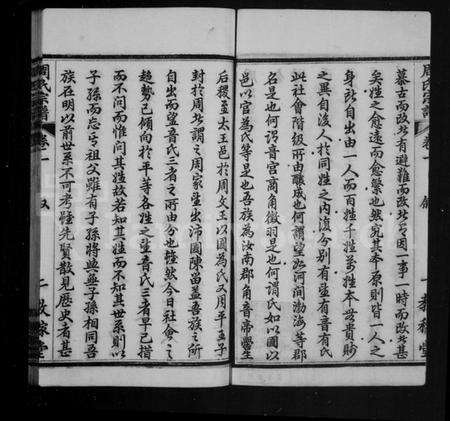 周氏宗譜
卷一
叙
一
教稼堂
慕古而改此有避難而改此号因一事一時而改此甚
矣姓之愈遠而愈繁也然究其本原則皆一人之
身所自出由一人而百姓千姓萬姓本無貴賤
之異自後人於同姓之內復分別有望有音有氏
此社會階級所由釀成也何謂望如河間渤海等郡
名是也何謂音宮商角徵羽是也何謂氏如以國以
邑以官為氏等是也吾族為汝南郡角音帝嚳生
后稷至太王邑於周文王以國為氏又周平王子
封於周此謂之周家望出沛國陳留蓋吾族之所
自出而望音氏三者之所由分也雖然今日社會之
趨勢已傾向於平等各姓之望音氏三者早已措
而不問而惟問其姓故若知其姓而不知其世系則以
子孫而忘乎祖父雖有子孫將與無子孫相同吾
族在明以前世系不可考惟先賢散見歷史者甚
周氏宗譜
卷一
叙
二
教稼堂